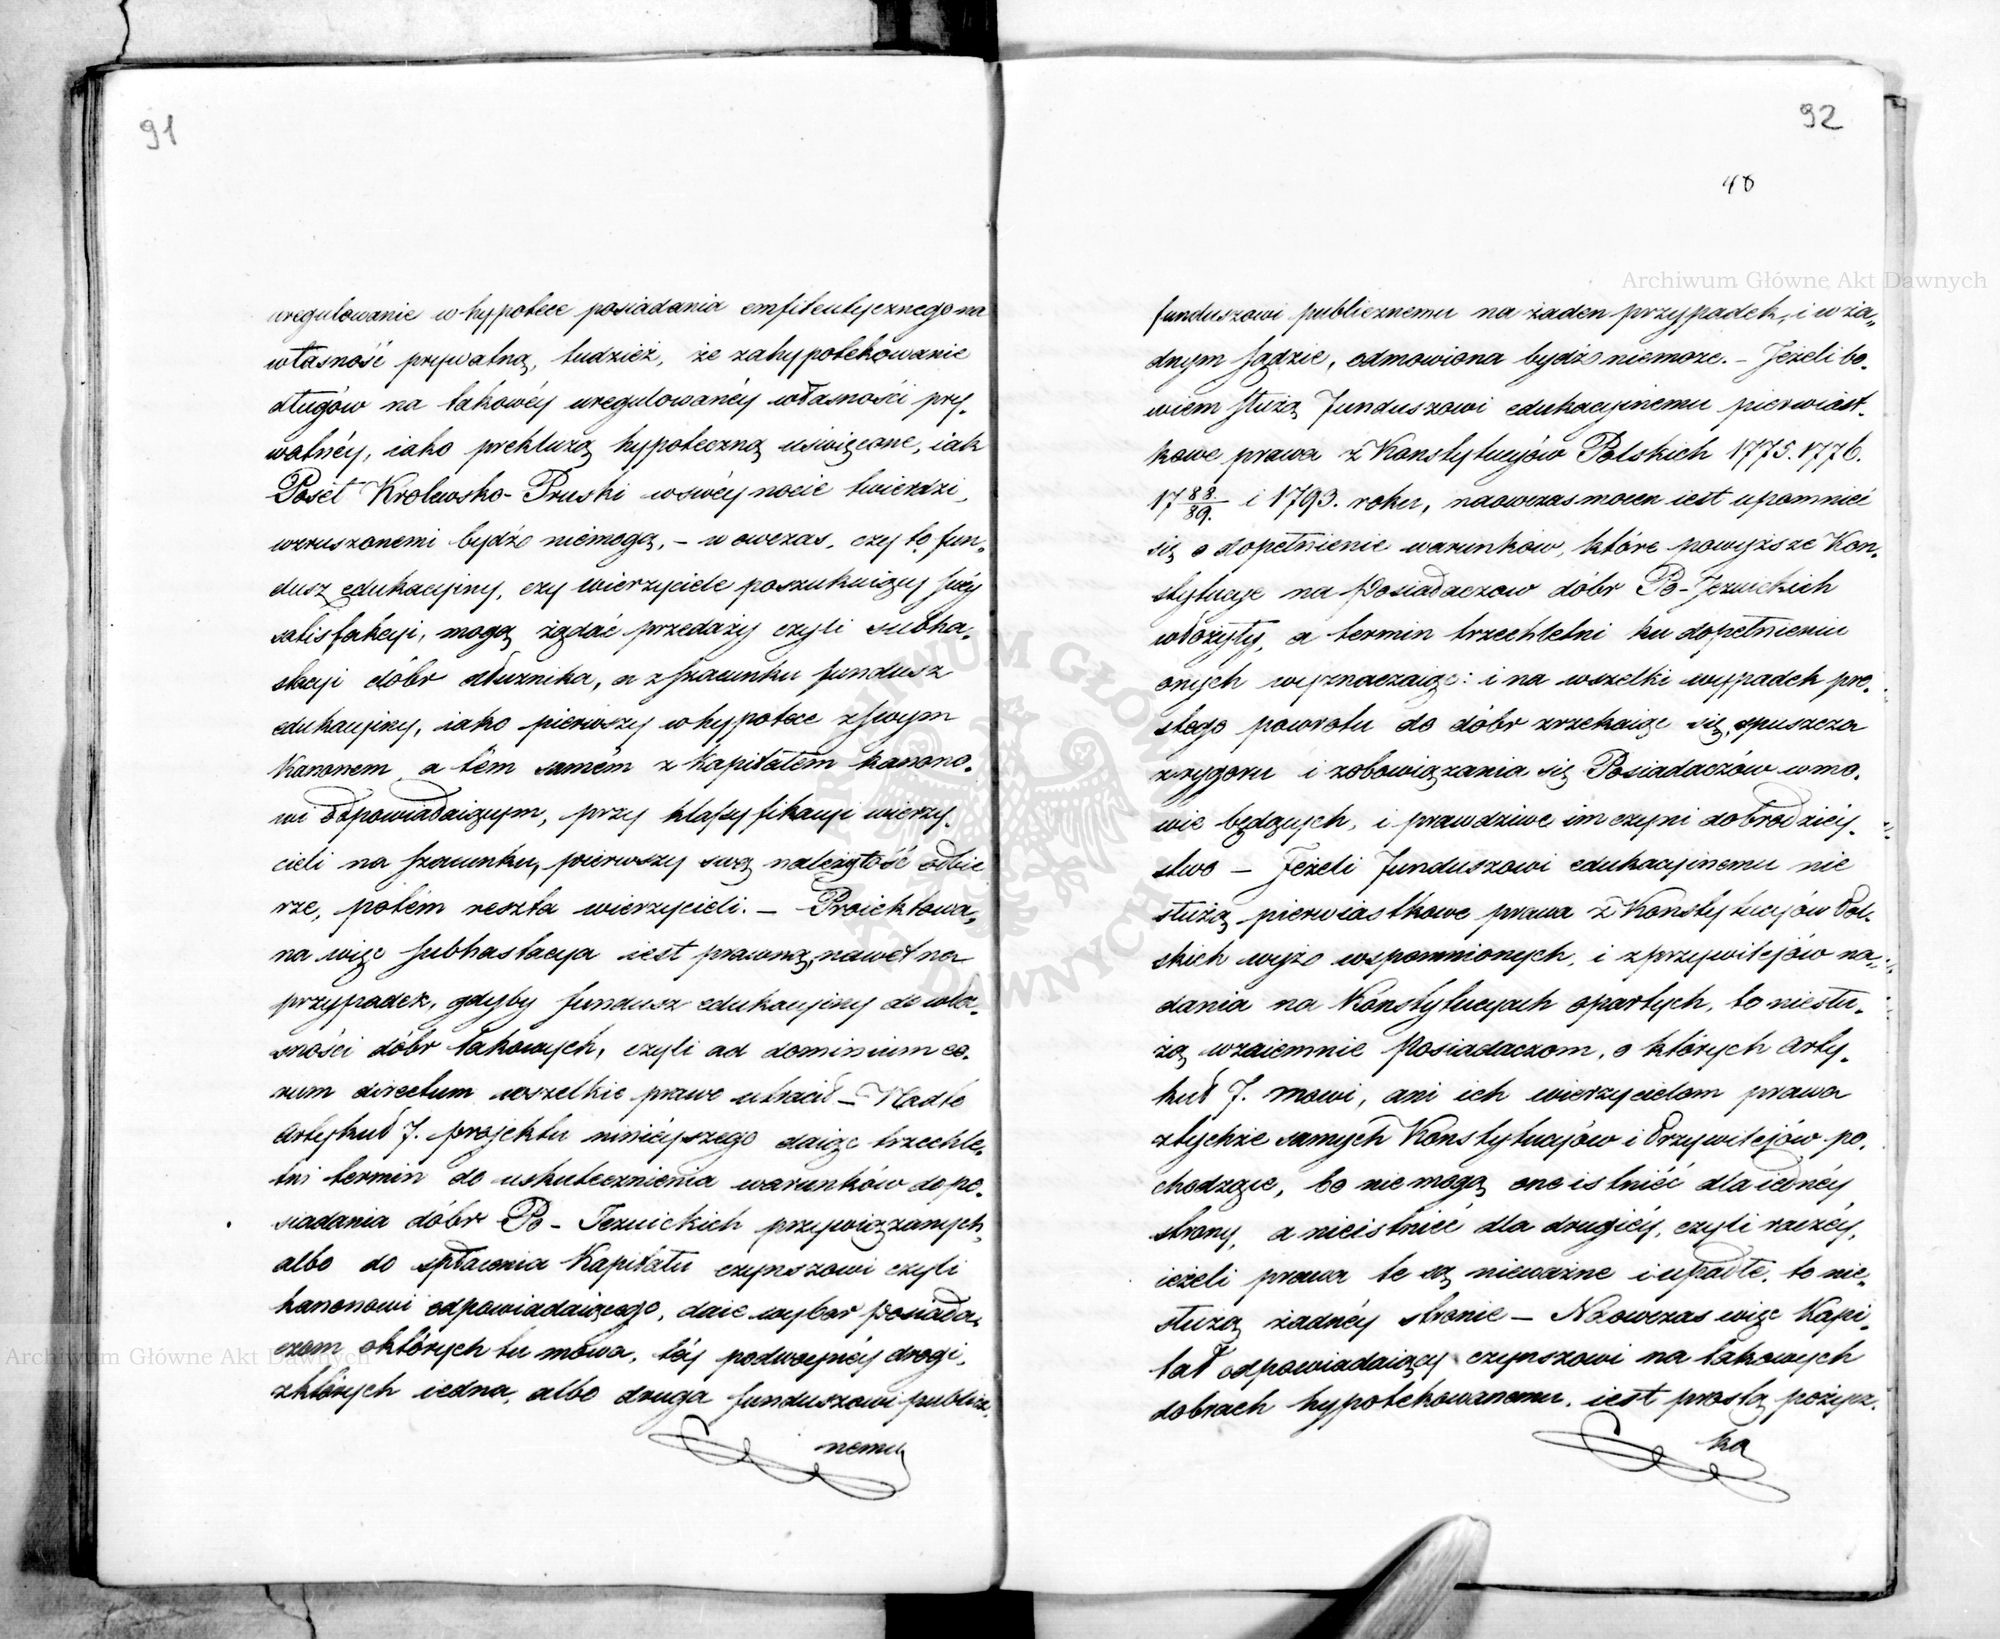 91
uregulowanie w hypotece posiadania emfiteutycznego na
własność prywatną, tudzież, że zahypotekowanie
długów na takowéy uregulowanéy własności pry-
watnéy, iako prekluzą hypoteczną uświęcone, iak
Poseł Krolewsko-Pruski w swéy nocie twierdzi,
wzruszonemi bydź niemogą, – w owczas, czy to fun-
dusz edukacyiny, czy wierzyciele poszukuiący swéy
satisfakcyi, mogą żądać przedaży czyli subha-
stacyi dóbr dłużnika, a z szacunku fundusz
edukacyiny, iako pierwszy w hypotece z swym
Kanonem a tém samém z kapitałem kanono-
wi odpowiadaiącym, przy klassyfikacyi wierzy-
cieli na szacunku, pierwszy swą należytość odbie
rze, potém reszta wierzycieli. – Proiektowa-
na więc subhastacya iest prawną, nawet na
przypadek, gdyby fundusz edukacyiny do wła-
sności dóbr takowych, czyli ad dominium eo-
rum directum wszelkie prawo utracił – Nadto
Artykuł 7. projektu niniéyszego daiąc trzechle-
tni termin do uskutecznienia warunków do po-
siadania dóbr Po-Jezuickich przywiązanych,
albo do spłacenia Kapitału czynszowi czyli
kanonowi odpowiadaiącego, daie wybor Posiada-
czom o których tu mowa, téy podwoynéy drogi,
z których iedna, albo druga funduszowi publicz-
nemu
92
48
funduszowi publicznemu na żaden przypadek, i w ża-
dnym sądzie, odmowiona bydź niemoze. – Jeżeli bo-
wiem służą Funduszowi edukacyinemu pierwiast-
kowe prawa z Konstytucyów Polskich 1775. 1776.
17 88/89. i 1793. roku, naowczas mocen iest upomnieć
się o dopełnienie warunków, które powyższe Kon-
stytucye na Posiadaczow dóbr Po-Jezuickich
włożyły, a termin trzechletni ku dopełnieniu
onych wyznaczaiąc: i na wszelki wypadek pro-
stego powrotu do dóbr zrzekaiąc się, opuszcza
z rygoru i zobowiązania się Posiadaczów w mo-
wie będących, i prawdziwe im czyni dobrodziéy-
stwo – Jeżeli Funduszowi edukacyinemu nie
służą pierwiastkowe prawa z Konstytucyów Pol-
skich wyżo wspomnionych, i z przywilejów na-
dania na Konstytucyach opartych, to niesłu-
żą wzaiemnie Posiadaczom, o których Arty-
kuł 7. mowi, ani ich wierzycielom prawa
z tychże samych Konstytucyów i Przywilejów po-
chodzące, bo nie mogą one istnieć dla iednéy
strony, a nieistnieć dla drugiéy, czyli raczéy,
ieżeli prawa te są nieważne i upadłe, to nie-
służą żadnéy stronie – Naowczas więc Kapi-
tał odpowiadaiący czynszowi na takowych
dobrach hypotekowanemu, iest prostą pożycz-
ka
Archiwum Główne Akt Dawnych
Archiwum Główne Akt Dawnych
ARCHIWUM GŁÓWNE AKT DAWNYCH